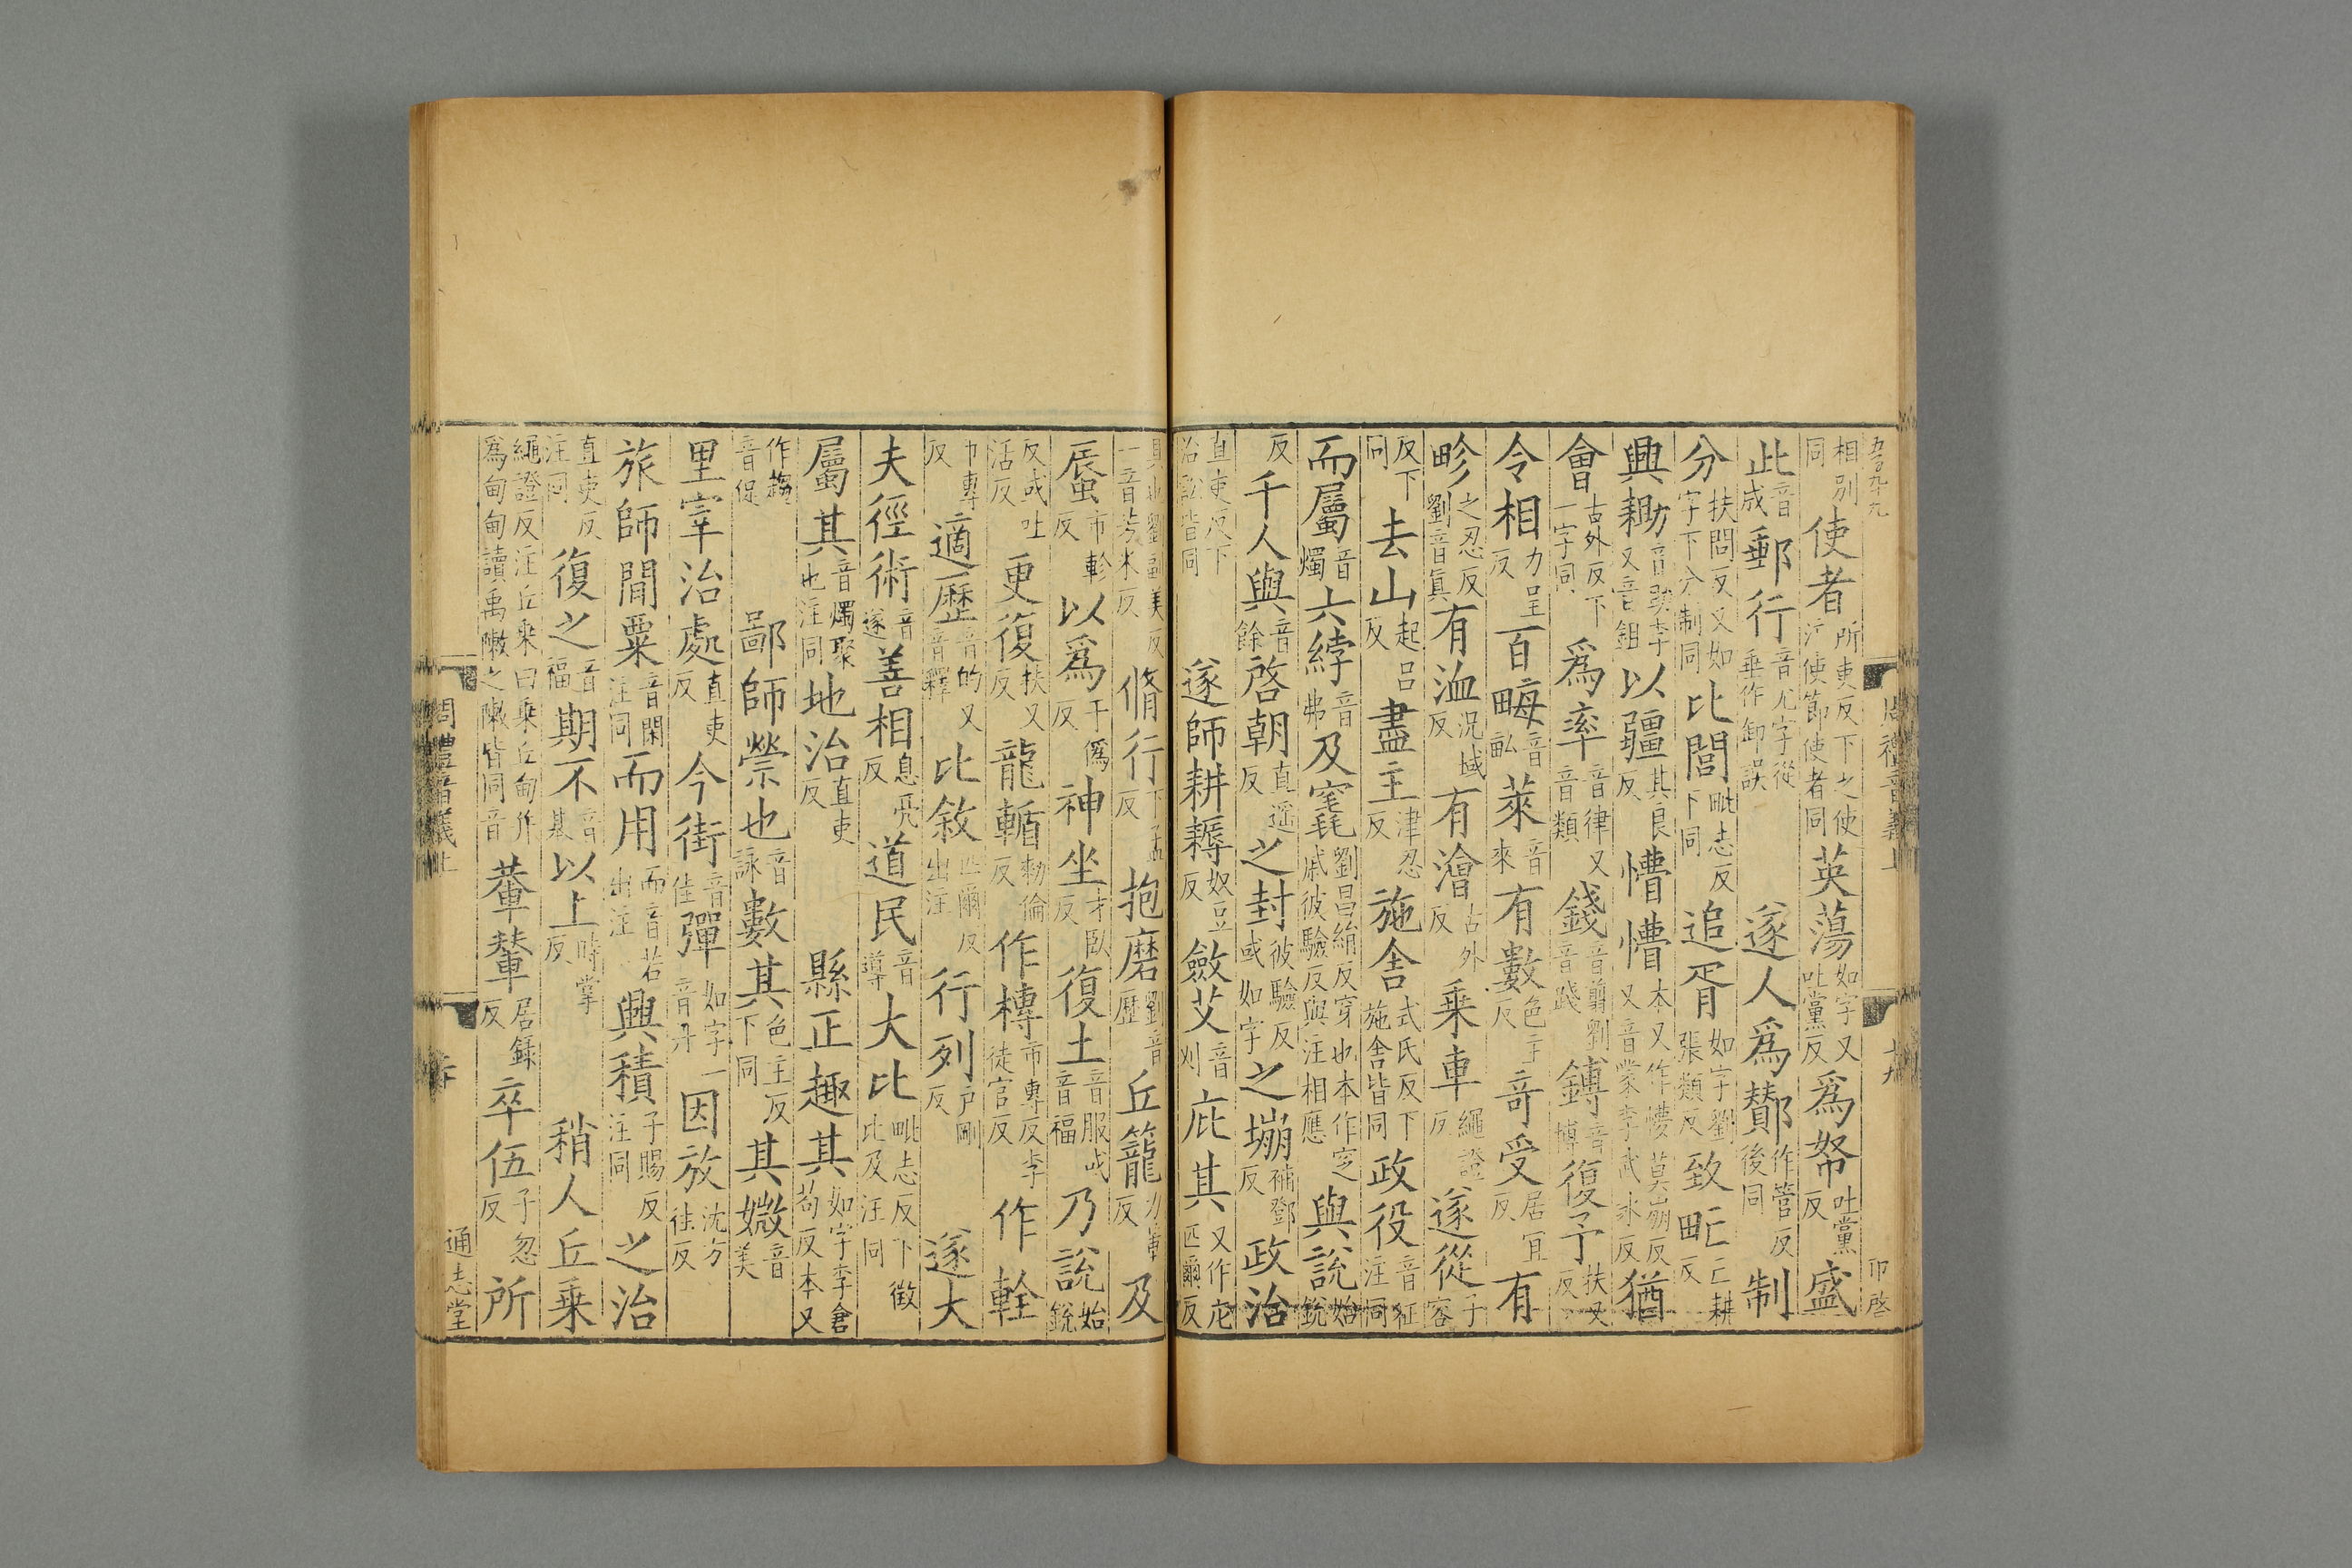 相別同使者所吏反下之使注使節使者同英蕩如字又吐黨反為帑吐黨反盛
此音成郵行音尤字從垂作卸誤遂人為酇作管反後同制
分扶問反又如字下分制同比閭毗志反下同追胥如字劉張類反致甿亡耕反
興耡音助李又音鉏以疆其良反懵懵本又作懜莫崩反又音蒙李武冰反猶
會古外反下一字同為率音律又音類錢音翦劉音踐鎛音博復予扶又反
令相力呈反百畮音畝萊音來有數色主反奇受居宜反有
畛之忍反劉音真有洫況域反有澮古外反乗車繩證反遂從子容
反下同去山起呂反盡主津忍反施舍式氏反下施舍皆同政役音征注同
而屬音燭六綍音弗及竁劉昌絹反穿也本作穵戚彼驗反與注相應與說始銳
反千人與音餘啓朝直遥反之封彼驗反或如字之堋補鄧反政治
直吏反下治訟皆同遂師耕耨奴豆反斂艾音刈庇其又作庀匹爾反
具也劉副美反一音芳米反脩行下孟反抱磨劉音歷丘籠力董反及
蜃市軫反以為于偽反神坐才臥反復土音服或音福乃說始銳
反或吐活反更復扶又反龍輴勑倫反作槫市專反李徒官反作輇
市專反適歷音的又音釋比敘匹爾反出注行列戶剛反遂大
夫徑術音遂善相息亮反道民音導大比毗志反下比及注同徵
屬其音燭聚也注同地治直吏反縣正趣其如字李倉苟反本又
作趨音促鄙師禜也音詠數其色主反下同其媺音美
里宰治處直吏反今街音佳彈如字一音丹因放沈方往反
旅師閒粟音閑注同而用而音若出注興積子賜反注同之治
直吏反注同復之音福期不音基以上時掌反稍人丘乗
繩證反注丘乗曰乗丘甸作為甸甸讀禹敶之敶皆同音輂輦居錄反卒伍子忽反所
周禮音義上
通志堂